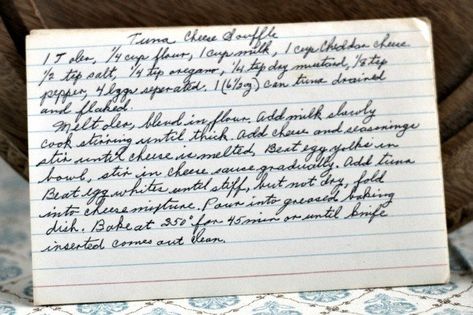 Tuna Cheese Souffle
1 T oleo, 1/4 cup flour, 1 cup milk, 1 cup Cheddar cheese
1/2 tsp salt, 1/4 tsp oregano, 1/4 tsp dry mustard, 1/8 tsp
pepper, 4 eggs seperated. 1 (6 1/2 oz) can tuna drained
and flaked.
Melt oleo, blend in flour. Add milk slowly
cook stirring until thick. Add cheese and seasonings
stir until cheese is melted. Beat egg yolks in
bowl, stir in cheese sauce gradually. Add tuna
Beat egg whites until stiff, but not dry, fold
into cheese mixture. Pour into greased baking
dish. Bake at 350° for 45 min or until knife
inserted comes out clean.